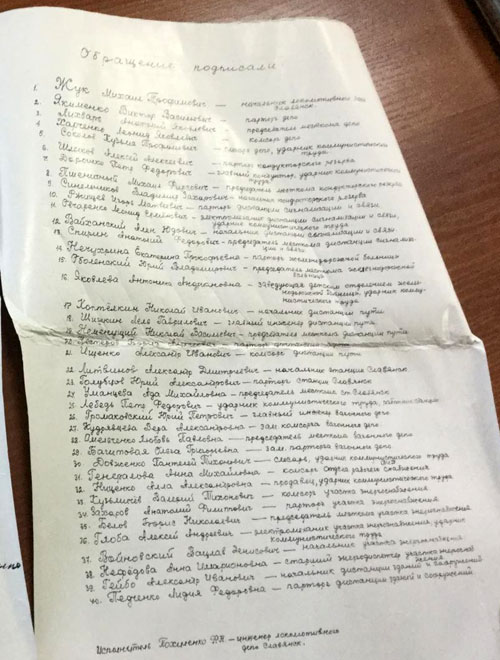 Обращение подписали:
1. Жук Михаил Трофимович — начальник локомотивного депо Славянск.
2. Якименко Виктор Васильевич — парторг депо
3. Анатолий Яковлевич — председатель месткома депо
4. Харченко Леонид Яковлевич — комсорг депо
5. слесарь депо, ударник коммунистического труда
6. Шевков Алексей Алексеевич — парторг кондукторского резерва
7. Доренко Петр Федорович — главный кондуктор, ударник коммунистического труда
8. Пшеничный Михаил — председатель месткома кондукторского резерва
9. Синельников Владимир Захарович — начальник кондукторского резерва
10. Ржищев Игорь Иванович — парторг дистанции сигнализации и связи
11. Овчаренко Леонид Семенович — электромеханик дистанции сигнализации и связи, ударник коммунистического труда
12. Файвович — начальник дистанции сигнализации и связи
13. Спирин Анатолий Федорович — председатель месткома дистанции сигнализации и связи
14. Нечухрина Екатерина Тимофеевна — парторг железнодорожной больницы
15. Оболенский Юрий Владимирович — председатель месткома железнодорожной больницы
16. Яковлева Антонина Андриановна — заведующая детским отделением железнодорожной больницы, ударник коммунистического труда
17. Коптелкин Николай Иванович — начальник дистанции пути
18. Шишкин Лель Гаврилович — главный инженер дистанции пути
19. Николай Васильевич — председатель месткома дистанции пути
20. парторг дистанции пути
21. Ищенко Александр Иванович — комсорг дистанции пути
22. Литвинов Александр Дмитриевич — начальник станции Славянск
23. Голубцов Юрий Александрович — парторг станции Славянск
24. Уманцева Ада Михайловна — председатель месткома ст. Славянск
25. Лебедь Петр Федорович — ударник коммунистического труда,
26. Громаковский Юрий Петрович — главный инженер вагонного депо
27. Кудрявцева Вера Александровна — зам. комсорга вагонного депо
28. Омельченко Любовь Павловна — председатель месткома вагонного депо
29. Баштовая Ольга Григорьевна — зам. парторга вагонного депо
30. Довженко Пантелей Тихонович — слесарь, ударник коммунистического труда
31. Генералова Анна Михайловна — комсорг отдела рабочего снабжения
32. Ниценко Алла Александровна — продавец, ударник коммунистического труда
33. Кузьминов Валерий Тихонович — комсорг участка энергоснабжения
34. Захаров Анатолий Филиппович — парторг участка энергоснабжения
35. Белов Борис Николаевич — председатель месткома участка энергоснабжения
36. Глоба Алексей Андреевич — электромеханик участка энергоснабжения, ударник коммунистического труда
37. Войновский Вацлав Денисович — начальник участка энергоснабжения
38. Нефедова Анна Илларионовна — старший энергодиспетчер участка энергоснабжения
39. Гейбо Александр Иванович — начальник дистанции зданий и сооружений
40. Педченко Лидия Федоровна — парторг дистанции зданий и сооружений
Исполнитель — инженер локомотивного депо Славянск.